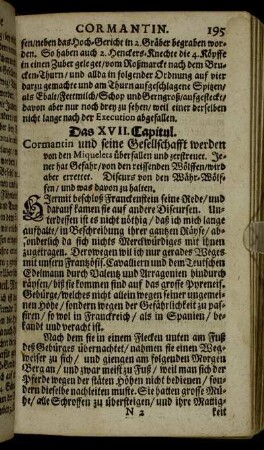 CORMANTIN. 195
sen/neben das Hoch-Gericht in 2. Gräber begraben wor-
den. So haben auch 2. Henckers-Knechte die 4. Köpffe
in einen Zuber geleget/vom Roßmarckt nach dem Bru-
cken-Thurn/ und allda in folgender Ordnung auf vier
darzu gemachte und am Thurn aufgeschlagene Spitzen/
als Ebalt/ Fettmilch/ Schop und Gerngroß/ aufgesteckt/
davon aber nur noch drey zu sehen/ weil einer derselben
nicht lange nach der Execution abgefallen.
Das XVII. Capitul.
Cormantin und seine Gesellschafft werden
von den Miquelets überfallen und zerstreuet. Je-
ner hat Gefahr/von den reissenden Wölffen/wird
aber errettet. Discurs von den Währ-Wölf-
fen/ und was davon zu halten.
HIermit beschloß Franckenstein seine Rede/ und
darauf kamen sie auf andere Discursen. Un-
terdessen ist es nicht nöthig/ daß ich mich lange
aufhalte/ in Beschreibung ihrer gantzen Räyse/ ab-
sonderlich da sich nichts Merckwürdiges mit ihnen
zugetragen. Derowegen will ich nur gerades Weges
mit unsern Frantzöis. Cavalliern und dem Teutschen
Edelmann durch Valentz und Arragonien hindurch
räysen/ biß sie kommen sind auf das grosse Pyreneis.
Gebürge/welches nicht allein wegen seiner ungemei-
nen Höhe/ sondern wegen der Gefährlichkeit zu pas-
siren/ so wol in Franckreich/ als in Spanien/ be-
kandt und veracht ist.
Nach dem sie in einem Flecken unten am Fuß
deß Gebürges übernachtet/ nahmen sie einen Weg-
weiser zu sich/ und giengen am folgenden Morgen
Berg an/ und zwar meist zu Fuß/ weil man sich der
Pferde wegen der stäten Höhen nicht bedienen/ son-
dern dieselbe nachleiten muste. Sie hatten grosse Mü-
he/ alle Schroffen zu übersteigen/ und ihre Mattig-
N 2 keit